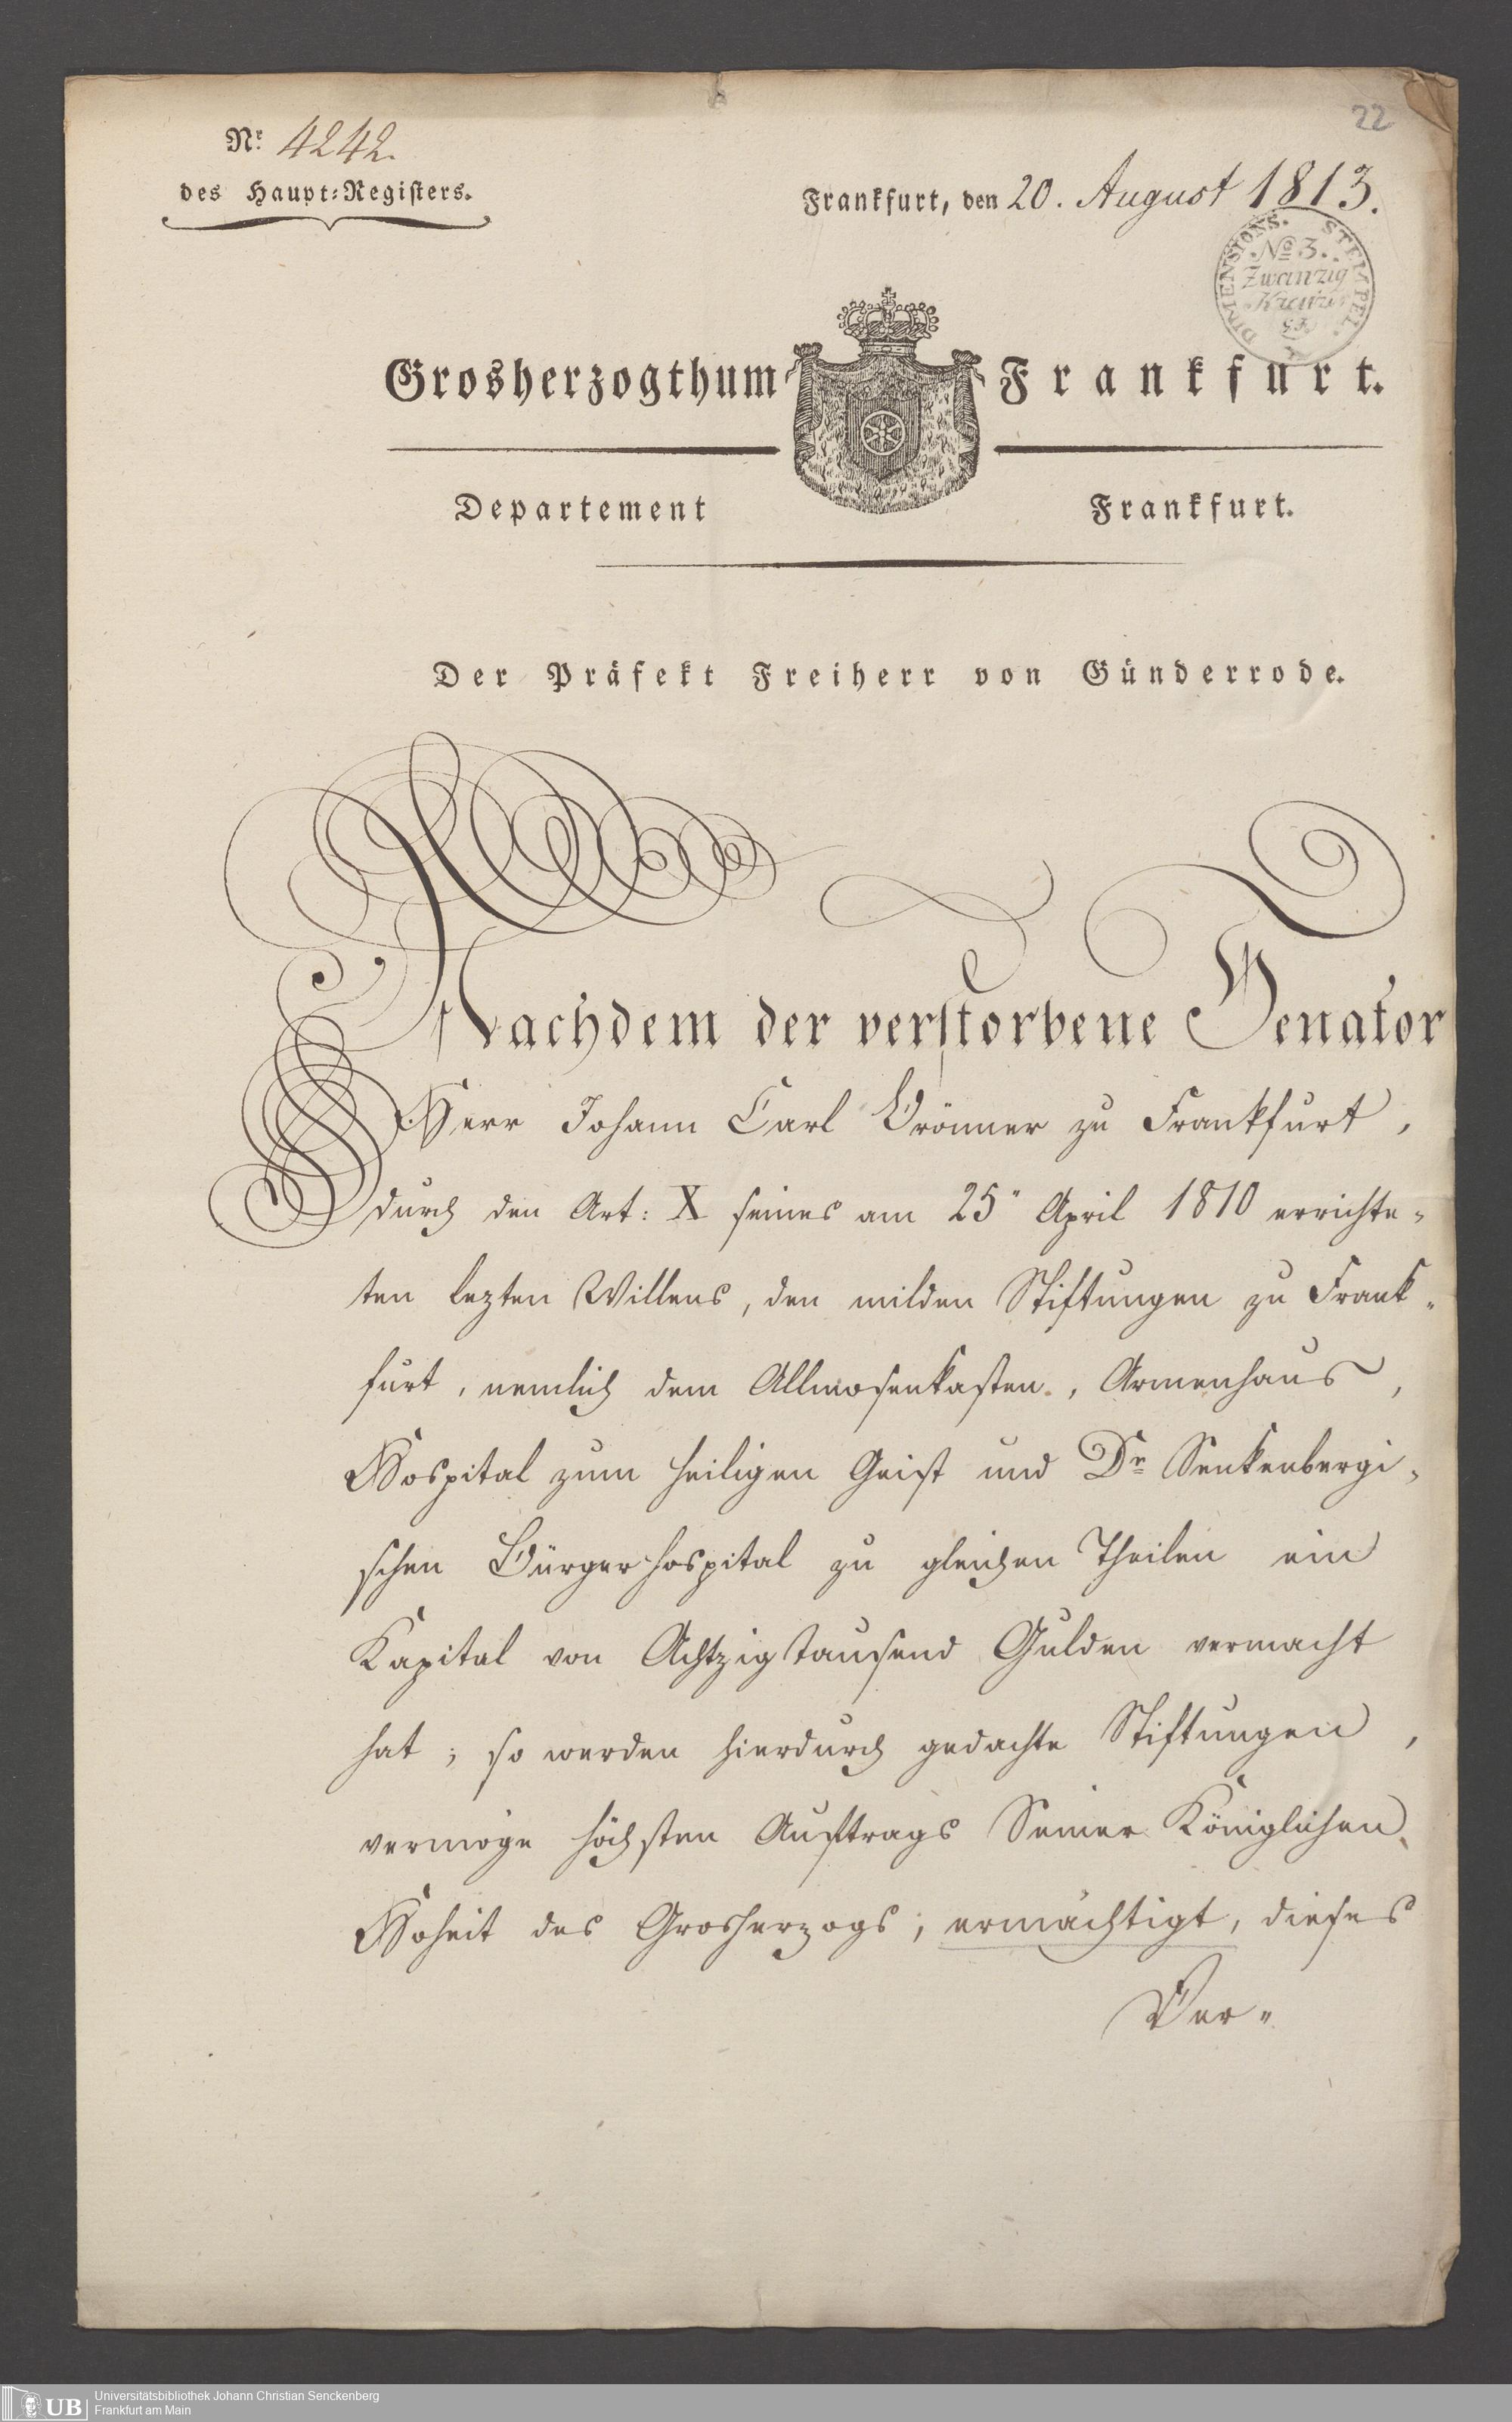 22
Nr. 4242.
des Haupt-Registers.
Frankfurt, den 20. August 1813.
DIMENSIONS. STEMPEL.
No 3.
Zwanzig
Grosherzogthum Frankfurt.
Departement Frankfurt.
Der Präfekt Freiherr von Günderrode.
Nachdem der verstorbene Senator
Herr Johann Carl Brönner zu Frankfurt,
durch den Art: X seines am 25" April 1810 errichte-
ten lezten Willens, den milden Stiftungen zu Frank-
furt, nemlich dem Allmosenkasten, Armenhaus,
Hospital zum heiligen Geist und Dr Senkenbergi-
schen Bürgerhospital zu gleichen Theilen ein
Kapital von Achtzigtausend Gulden vermacht
hat; so werden hierdurch gedachte Stiftungen,
vermöge höchsten Auftrags Seiner Königlichen
Hoheit des Grosherzogs, ermächtigt, dieses
Ver-
UB Universitätsbibliothek Johann Christian Senckenberg
Frankfurt am Main